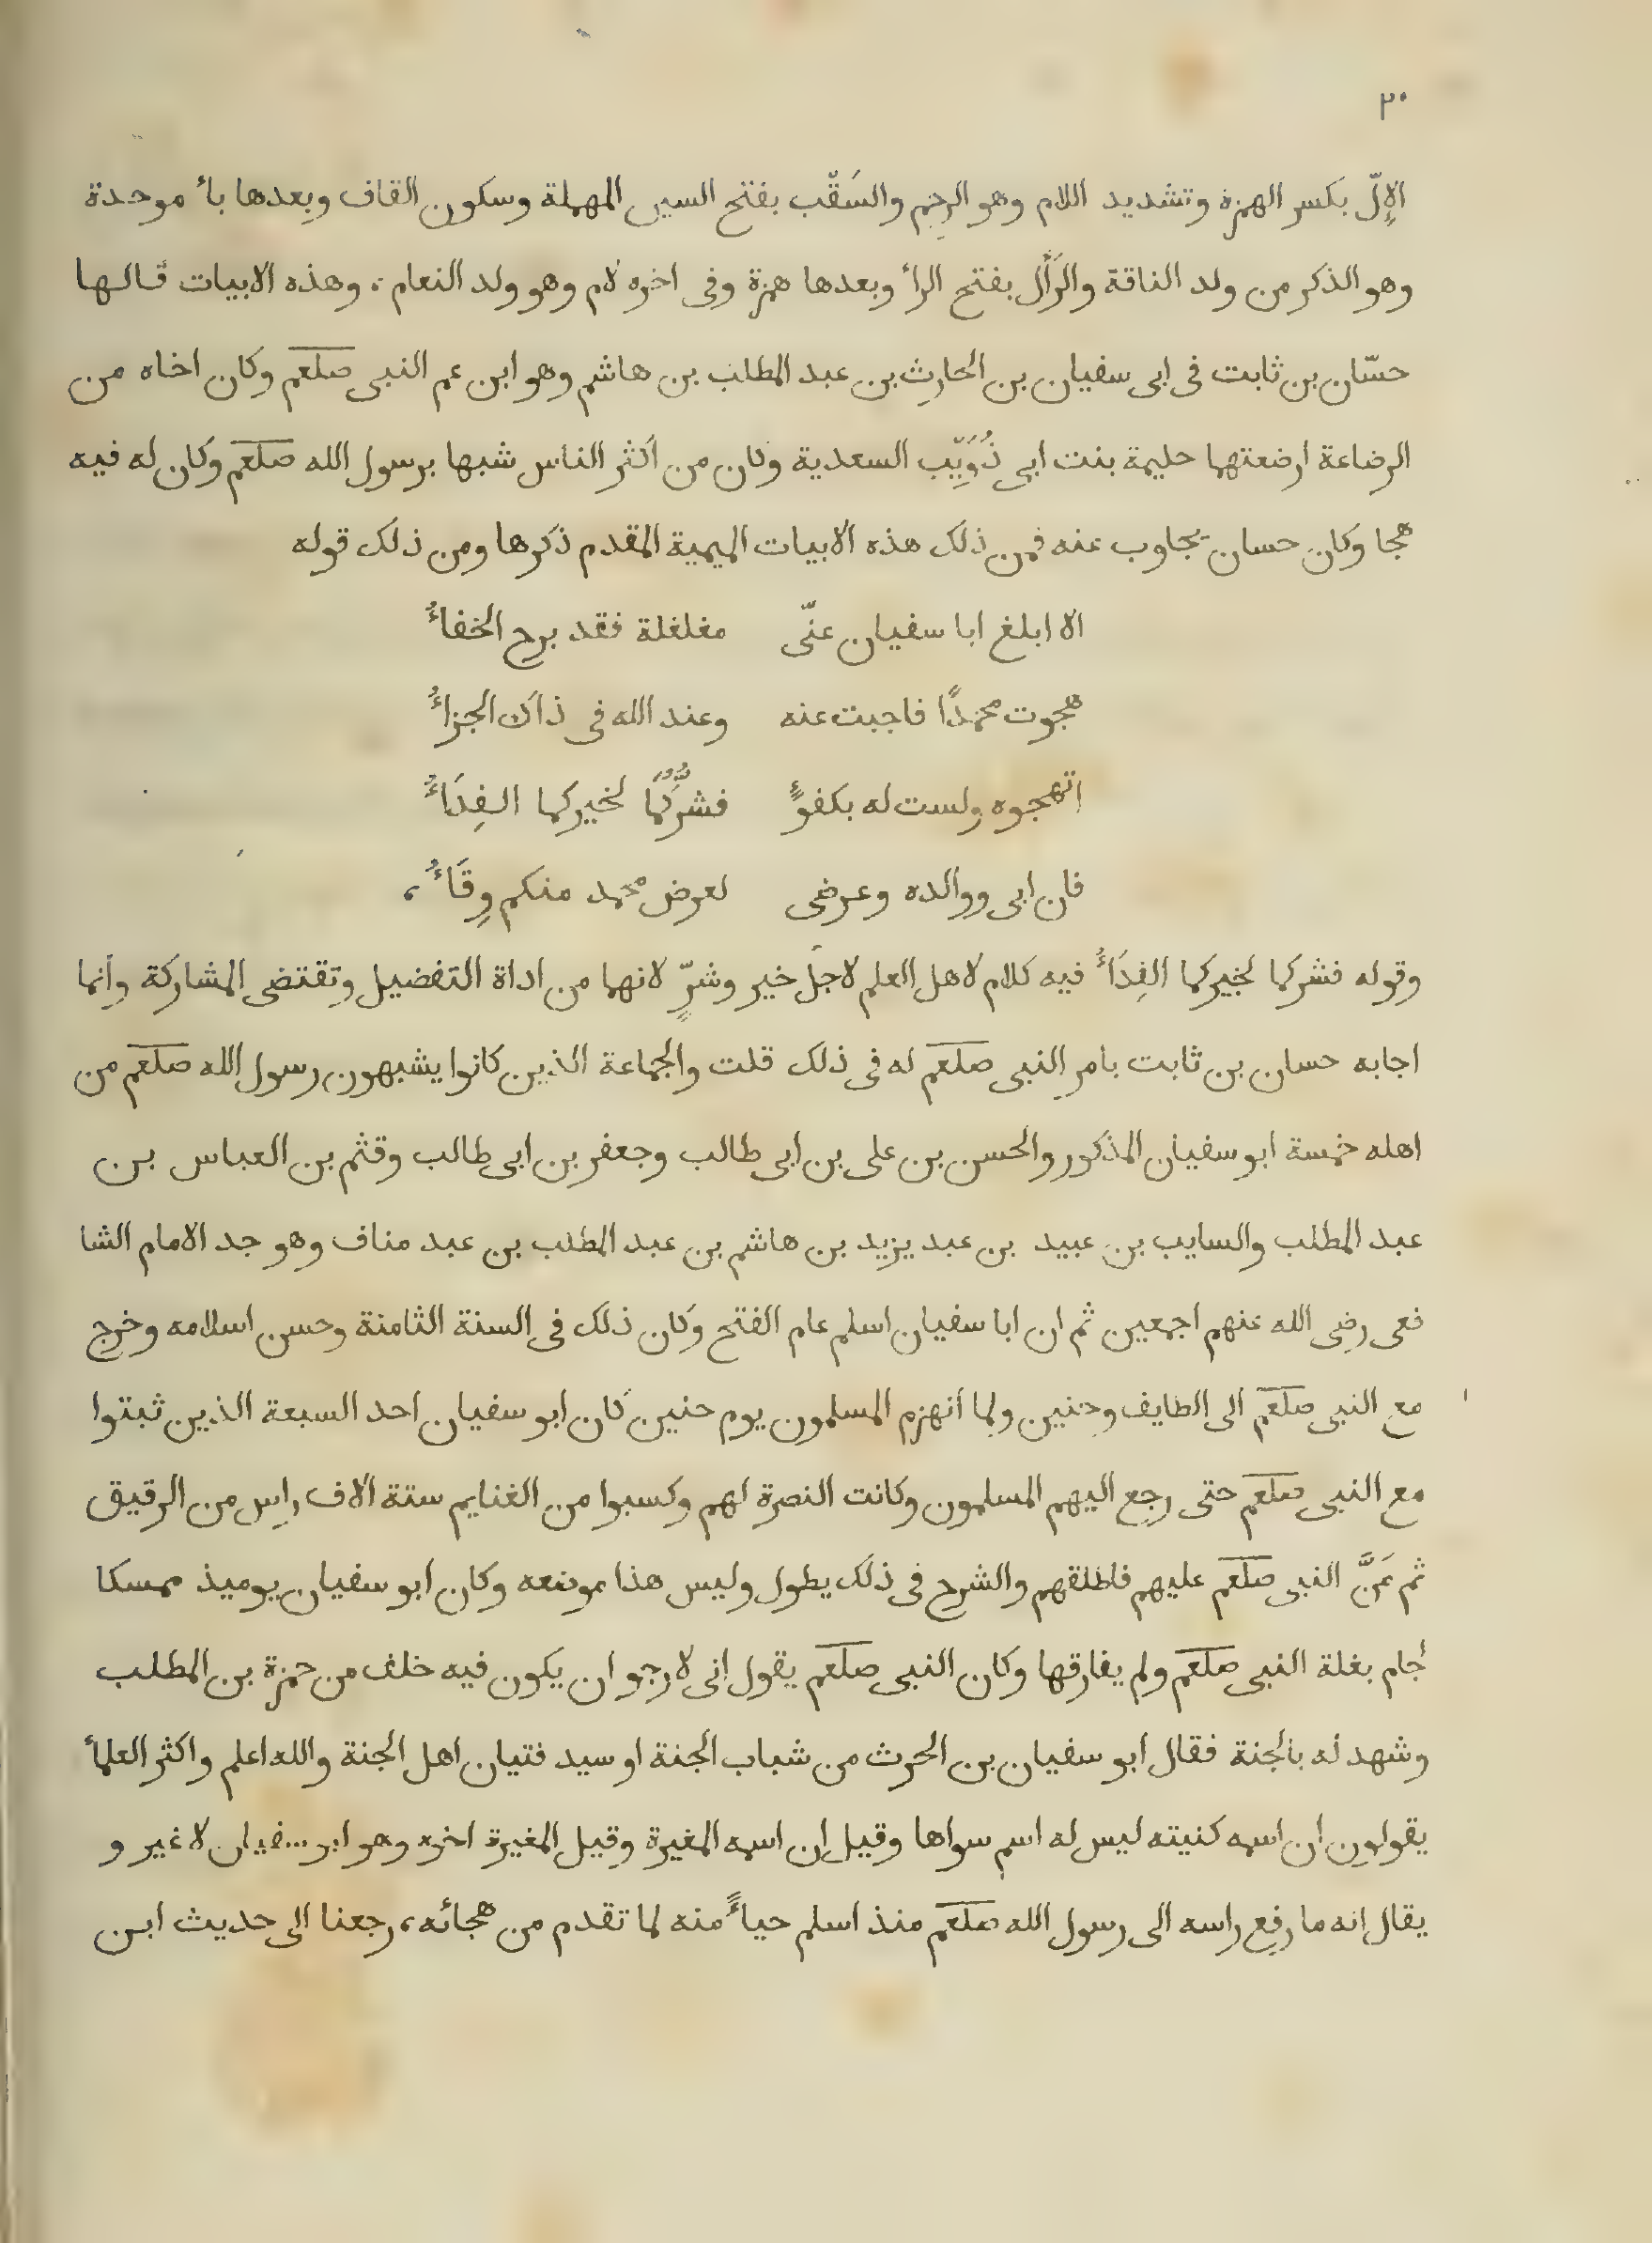 ٢٠
الإلّ بكسر الهمزة وتشديد اللام وهو الرحم والسَقْب بفتح السين المهملة وسكون القاف وبعدها باء موحدة
وهو الذكر من ولد الناقة والرَأْل بفتح الراء وبعدها همزة وفى اخره لام وهو ولد النعام، وهذه الابيات قالها
حسّان بن ثابت فى ابى سفيان بن الحارث بن عبد المطلب بن هاشم وهو ابن عم النبى صلعم وكان اخاه من
الرضاعة ارضعتهما حليمة بنت ابى ذُوَيِّب السعدية وكان من اكثر الناس شبها برسول الله صلعم وكان له فيه
هجا وكان حسان يجاوب عنه فمن ذلك هذه الابيات الميمية المقدم ذكرها ومن ذلك قوله
الا ابلغ ابا سفيان عنّى مغلغلة فقد برح الخفاءُ
هجوت محمدًا فاجبت عنه وعند الله فى ذاك الجزاءُ
اتهجوه ولست له بكفوءٍ فشرُّكُما لخيركما الفِدَاءُ
فان ابى ووالده وعرضى لعرض محمد منكم وِقَاءُ،
وقوله فشركما لخيركما الفِدَاءُ فيه كلام لاهل العلم لاجل خير وشرٍّ لانهما من اداة التفضيل وتقتضى المشاركة وانما
اجابه حسان بن ثابت بامر النبى صلعم له فى ذلك قلت والجماعة الذين كانوا يشبهون رسول الله صلعم من
اهله خمسة ابو سفيان المذكور والحسن بن على بن ابى طالب وجعفر بن ابى طالب وقثم بن العباس بن
عبد المطلب والسايب بن عبيد بن عبد يزيد بن هاشم بن عبد المطلب بن عبد مناف وهو جد الامام الشا
فعى رضى الله عنهم اجمعين ثم ان ابا سفيان اسلم عام الفتح وكان ذلك فى السنة الثامنة وحسن اسلامه وخرج
مع النبى صلعم الى الطايف وحنين ولما انهزم المسلمون يوم حنين كان ابو سفيان احد السبعة الذين ثبتوا
مع النبى صلعم حتى رجع اليهم المسلمون وكانت النصرة لهم وكسبوا من الغنايم ستة الاف راس من الرقيق
ثم مَنَّ النبى صلعم عليهم فاطلقهم والشرح فى ذلك يطول وليس هذا موضعه وكان ابو سفيان يوميذ ممسكا
لجام بغلة النبى صلعم ولم يفارقها وكان النبى صلعم يقول انى لارجو ان يكون فيه خلف من حمزة بن المطلب
وشهد له بالجنة فقال ابو سفيان بن الحرث من شباب الجنة او سيد فتيان اهل الجنة والله اعلم واكثر العلماء
يقولون ان اسمه كنيته ليس له اسم سواها وقيل ان اسمه المغيرة وقيل المغيرة اخوه وهو ابو سفيان لا غير و
يقال انه ما رفع راسه الى رسول الله صلعم منذ اسلم حياءً منه لما تقدم من هجائه، رجعنا الى حديث ابن